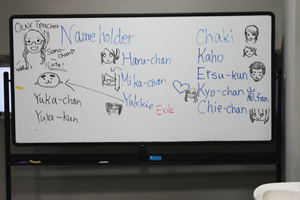 Our Teacher
Nameholder
Sono-chan
Cute!
Yuka-chan
Yuya-kun
Haru-chan
Mika-chan
Yukkie
Exile
Chaki
Kaho
Etsu-kun
Kyo-chan
Chie-chan